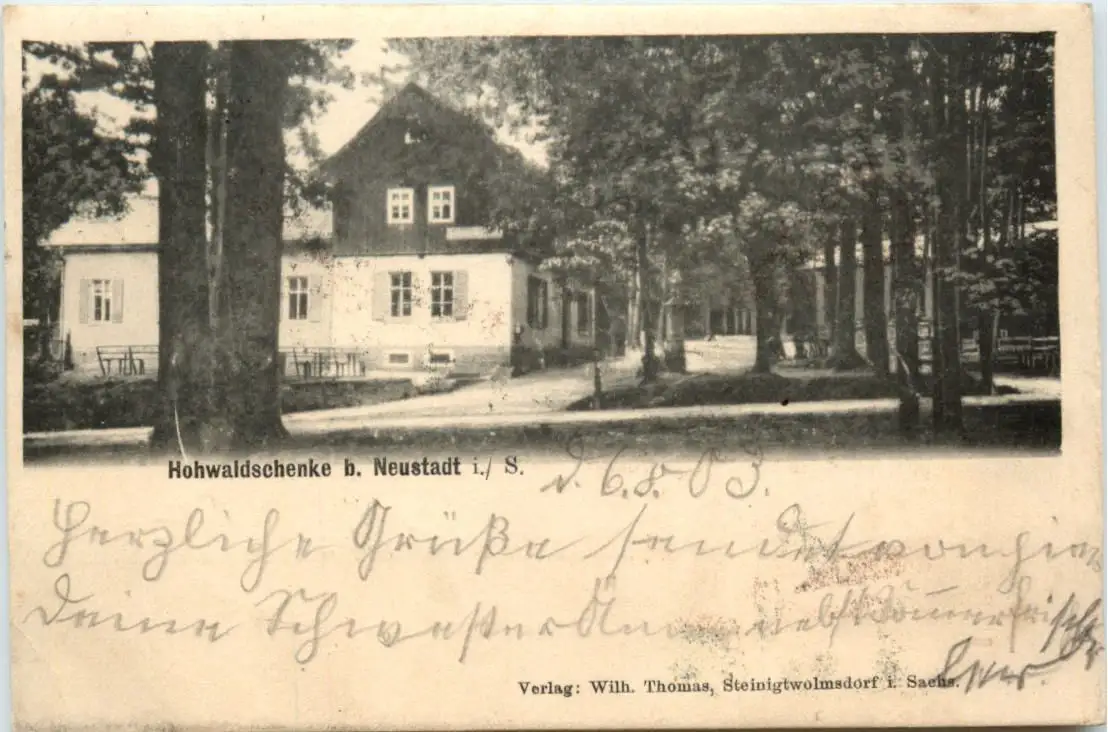 Hohwaldschenke b. Neustadt i./ S.
d. 6.8.03.
Herzliche Grüße sendet von hier
Deine Schwester nebst
Verlag: Wilh. Thomas, Steinigtwolmsdorf i. Sachs.